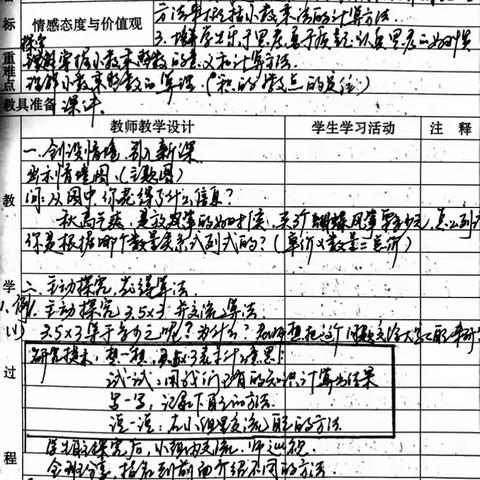 标 情感态度与价值观
方法来探究小数乘法的计算方法。
3. 培养学生乐于思考、善于质疑、认真思考的好习惯
重难点
理解掌握小数乘整数的意义和计算方法。
理解小数乘整数的算理（积的小数点的定位）
教具准备 课件
教师教学设计 学生学习活动 注 释
一、创设情境，引入新课
出示情境图。（主题图）
问：从图中你获得了什么信息？
秋高气爽，是放风筝的好时候，买3个蝴蝶风筝要多少元，怎么列式
你是根据哪个数量关系式列式的？（单价×数量=总价）
教
学
过
程
二、主动探究，获得算法
1、例1. 主动探究3.5×3 并交流算法。
3.5×3等于多少元呢？为什么？
想一想：3.5×3表示什么意思？
试一试：用我们已有的知识计算出结果
写一写：记录下自己的方法
说一说：在小组里交流自己的方法
学生自主探究后，小组内交流，师巡视
全班分享，指名到前面介绍不同的方法